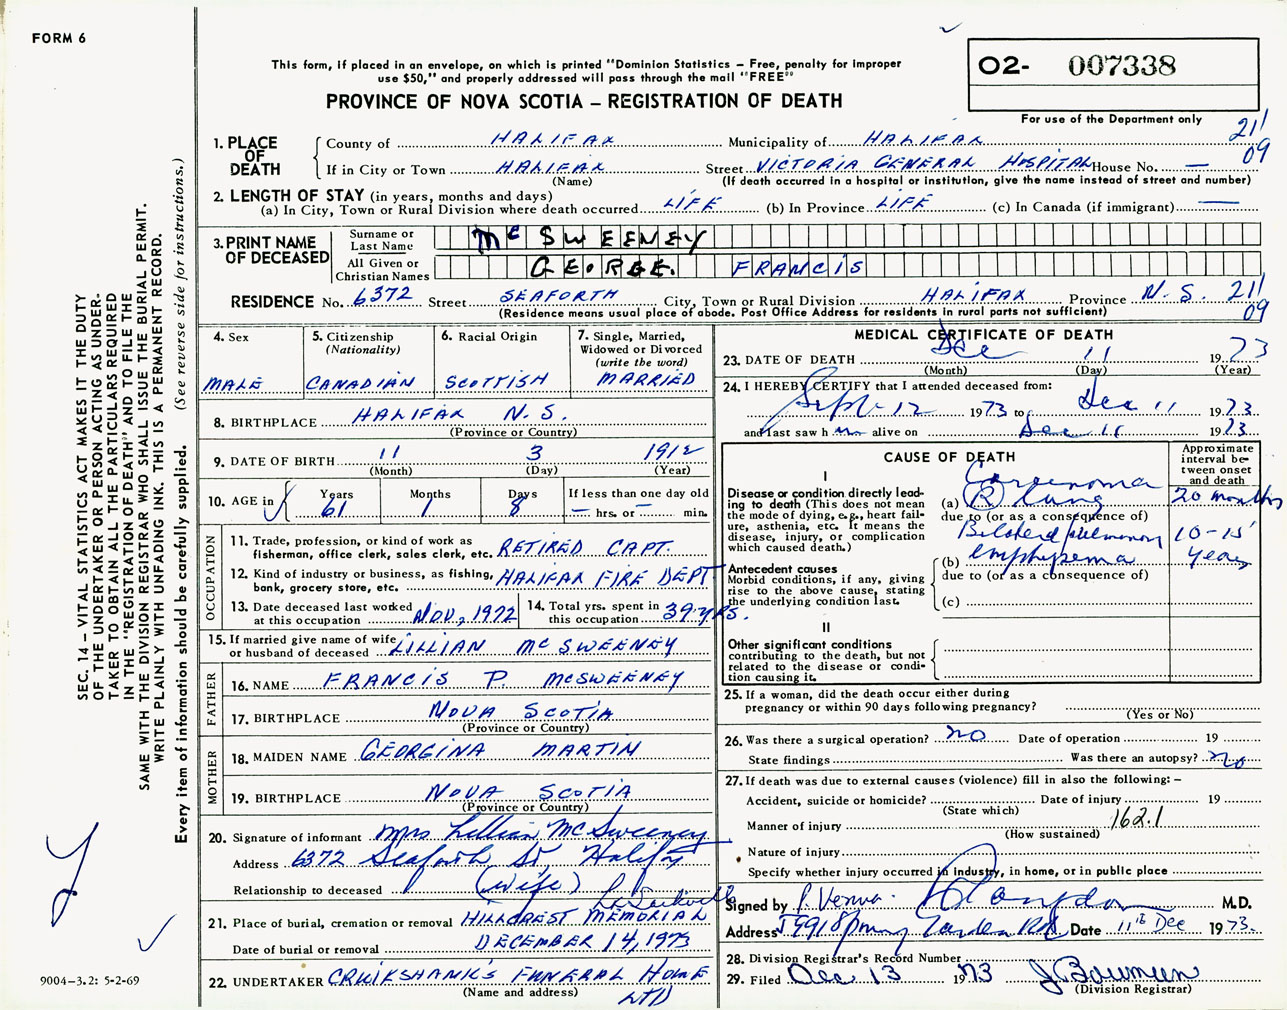 FORM 6
This form, if placed in an envelope, on which is printed "Dominion Statistics – Free, penalty for improper
use $50," and properly addressed will pass through the mail "FREE"
PROVINCE OF NOVA SCOTIA – REGISTRATION OF DEATH
O2- 007338
For use of the Department only
211
09
1. PLACE OF DEATH
County of HALIFAX Municipality of HALIFAX
If in City or Town HALIFAX Street VICTORIA GENERAL HOSPITAL House No. —
(Name) (If death occurred in a hospital or institution, give the name instead of street and number)
2. LENGTH OF STAY (in years, months and days)
(a) In City, Town or Rural Division where death occurred LIFE (b) In Province LIFE (c) In Canada (if immigrant) —
3. PRINT NAME OF DECEASED
Surname or Last Name McSWEENEY
All Given or Christian Names GEORGE. FRANCIS
RESIDENCE No. 6372 Street SEAFORTH City, Town or Rural Division HALIFAX Province N.S. 211
09
(Residence means usual place of abode. Post Office Address for residents in rural parts not sufficient)
4. Sex
MALE
5. Citizenship
(Nationality)
CANADIAN
6. Racial Origin
SCOTTISH
7. Single, Married,
Widowed or Divorced
(write the word)
MARRIED
8. BIRTHPLACE HALIFAX N.S.
(Province or Country)
9. DATE OF BIRTH 11 3 1912
(Month) (Day) (Year)
10. AGE in Years Months Days If less than one day old
61 1 8 — hrs. or — min.
OCCUPATION
11. Trade, profession, or kind of work as
fisherman, office clerk, sales clerk, etc. RETIRED CAPT.
12. Kind of industry or business, as fishing,
bank, grocery store, etc. HALIFAX FIRE DEPT
13. Date deceased last worked
at this occupation NOV., 1972
14. Total yrs. spent in
this occupation 39 yrs.
15. If married give name of wife
or husband of deceased LILLIAN McSWEENEY
FATHER
16. NAME FRANCIS P. McSWEENEY
17. BIRTHPLACE NOVA SCOTIA
(Province or Country)
MOTHER
18. MAIDEN NAME GEORGINA MARTIN
19. BIRTHPLACE NOVA SCOTIA
(Province or Country)
20. Signature of informant Mrs Lillian McSweeney
Address 6372 Seaforth St, Halifax
Relationship to deceased (wife)
21. Place of burial, cremation or removal HILLCREST MEMORIAL
Date of burial or removal DECEMBER 14, 1973
22. UNDERTAKER CRUIKSHANK'S FUNERAL HOME
(Name and address) LTD
MEDICAL CERTIFICATE OF DEATH
23. DATE OF DEATH Dec 11 1973
(Month) (Day) (Year)
24. I HEREBY CERTIFY that I attended deceased from:
Sept 12 1973 to Dec 11 1973
and last saw him alive on Dec 11 1973
CAUSE OF DEATH
Approximate
interval be-
tween onset
and death
I
Disease or condition directly lead-
ing to death (This does not mean
the mode of dying, e.g., heart fail-
ure, asthenia, etc. It means the
disease, injury, or complication
which caused death.)
Carcinoma
(a) (R) lung 20 months
due to (or as a consequence of)
Bilateral pulmonary 10-15
(b) emphysema years
due to (or as a consequence of)
(c)
Antecedent causes
Morbid conditions, if any, giving
rise to the above cause, stating
the underlying condition last.
II
Other significant conditions
contributing to the death, but not
related to the disease or condi-
tion causing it.
25. If a woman, did the death occur either during
pregnancy or within 90 days following pregnancy?
(Yes or No)
26. Was there a surgical operation? no Date of operation 19
State findings Was there an autopsy? no
27. If death was due to external causes (violence) fill in also the following: –
Accident, suicide or homicide? Date of injury 19
(State which)
Manner of injury 162.1
(How sustained)
Nature of injury
Specify whether injury occurred in industry, in home, or in public place
Signed by P. Verma. M.D.
Address 5991 Spring Garden Rd Date 11th Dec 1973.
28. Division Registrar's Record Number
29. Filed Dec 13 1973 J Bowmen
(Division Registrar)
SEC. 14 – VITAL STATISTICS ACT MAKES IT THE DUTY
OF THE UNDERTAKER OR PERSON ACTING AS UNDER-
TAKER TO OBTAIN ALL THE PARTICULARS REQUIRED
IN THE "REGISTRATION OF DEATH" AND TO FILE THE
SAME WITH THE DIVISION REGISTRAR WHO SHALL ISSUE THE BURIAL PERMIT.
WRITE PLAINLY WITH UNFADING INK. THIS IS A PERMANENT RECORD.
Every item of information should be carefully supplied. (See reverse side for instructions.)
9004–3.2: 5-2-69